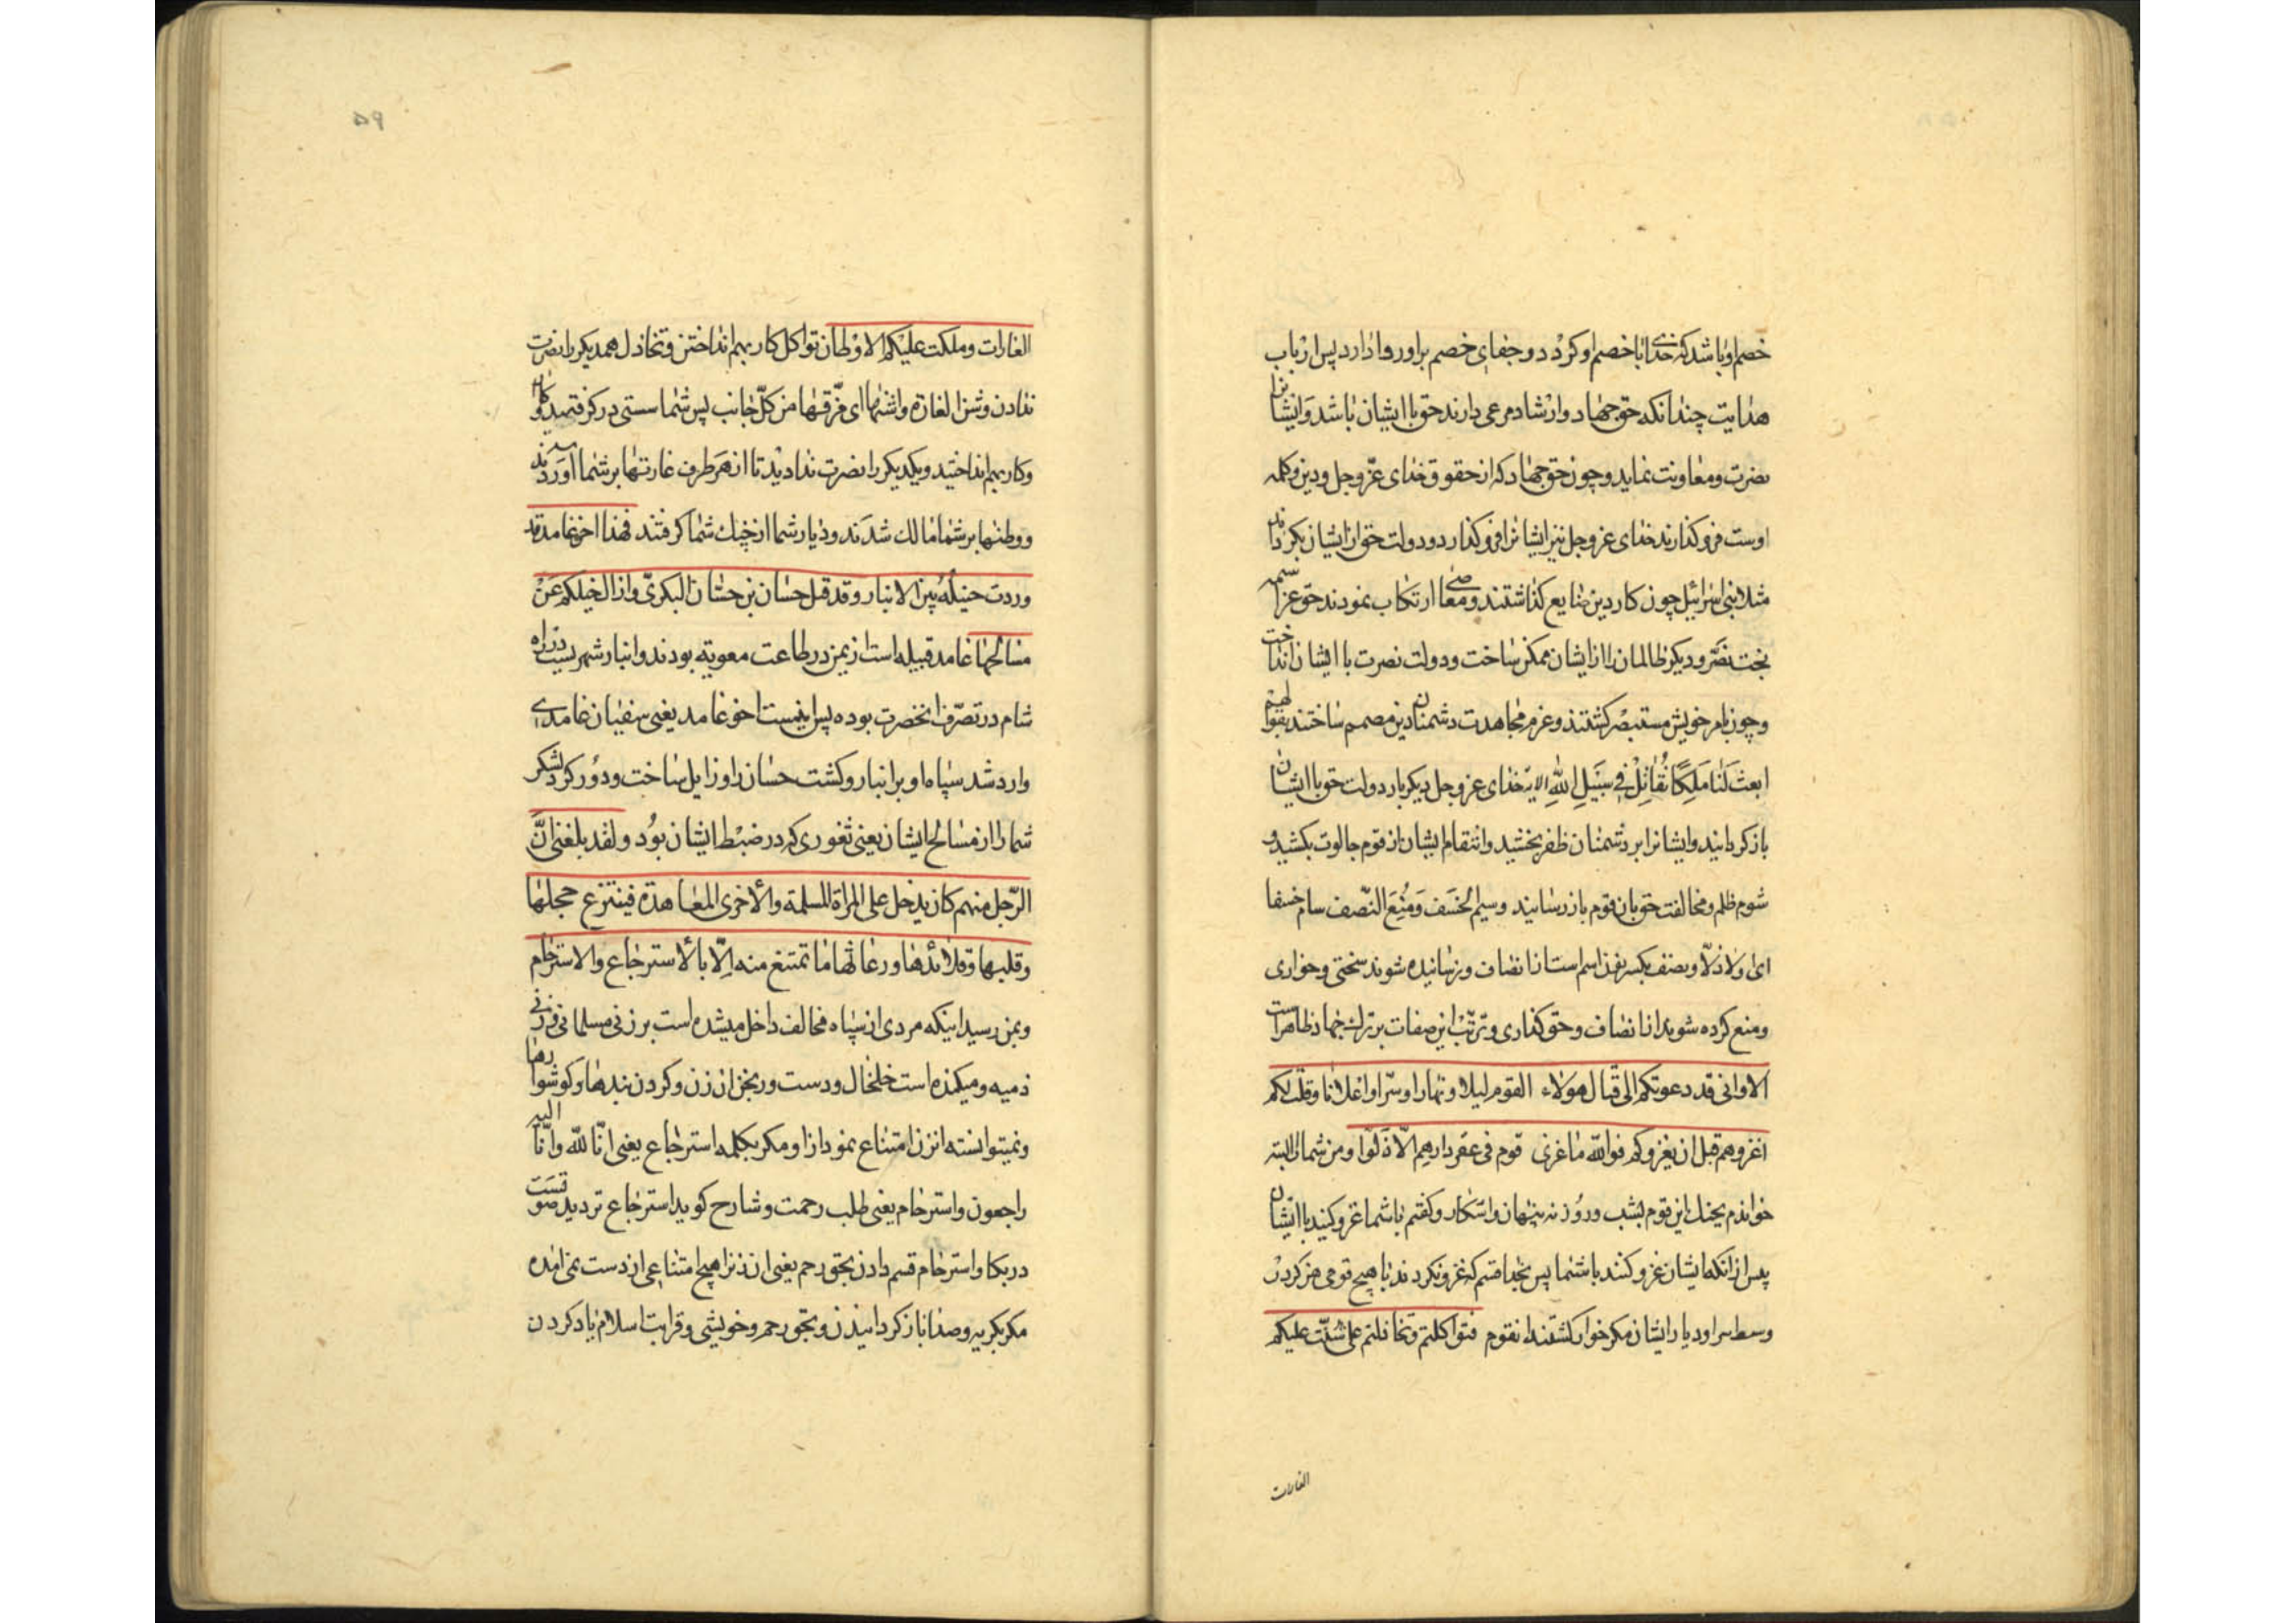 خصم او باشد که خدای با خصم او کردد و جفای خصم بر او روا دارد پس ارباب
هدایت چندانکه حق جهاد و ارشاد مرعی دارند حق با ایشان باشد و ایشانرا
نصرت و معاونت نماید و چون حق جهاد که از حقوق خدای عز و جل و دین و کلمه
اوست فرو کذارند خدای عز و جل نیز ایشانرا فرو کذارد و دولت حق از ایشان بکرداند
مثلا بنی اسرائیل چون کار دین ضایع کذاشتند و معاصی ارتکاب نمودند حق عز اسمه
بخت نصر و دیکر ظالمان را از ایشان ممکن ساخت و دولت نصرت با ایشان انداخت
و چون بامر خویش مستبصر کشتند و عزم مجاهدت دشمنان دین مصمم ساختند بقولهم
ابعث لَنا مَلِكًا نُقاتِلْ فِي سَبيلِ اللهِ الایة خدای عز و جل دیکر بار دولت حق با ایشان
باز کردانید و ایشانرا بر دشمنان ظفر بخشید و انتقام ایشان از قوم جالوت بکشید و
شوم ظلم و مخالفت حق بان قوم باز رسانید وسیم الخسَف وَمُنِعَ النّصف سام خسفا
ای ولاذلا و نصف بکسر نون اسم است از انصاف و رسانیده شوند سختی و خواری
و منع کرده شوند از انصاف و حق کذاری و ترتّب این صفات بر ترک جهاد ظاهر است
الا وانی قد دعوتکم الی قتال هولاء القوم لیلا و نهارا و سرا و اعلانا و قلت لکم
اغزوهم قبل ان یغزوکم فوالله ما غزی قوم فی عقر دارهم الّا ذلوا و من شما را البته
خواندم بجنک این قوم بشب و روز نه پنهان و آشکار و کفتم باشما غزو کنید با ایشان
پیش از انکه ایشان غزو کنند باشما پس بخدا قسم که غزو نکردند با هیچ قومی هرکز در
وسط سرا و دیار ایشان مکر خوار کشتند انقوم فتواکلتم و تخاذلتم حتی شنّت علیکم
الغارات
۵۹
الغارات و ملکت علیکم الاوطان تواکل کار بهم انداختن و تخاذل همدیکر را نصرت
ندادن و شن الغارة و اشنها ای فرّقها من کلّ جانب پس شما سستی در کرفتید و کاهلی
و کار بهم انداختید و یکدیکر را نصرت ندادید تا از هر طرف غارتها بر شما آوردند
و وطنها بر شما مالک شدند و دیار شما از چنک شما کرفتند فهذا اخو غامد قد
وردت خیله الانبار و قد قتل حسان بن حسّان البکریّ و ازال خیلکم عَنْ
مسالحها غامد قبیله است از یمن در طاعت معویه بودند و انبار شهریست در راه
شام در تصرّف انحضرت بوده پس اینست اخو غامد یعنی سفیان غامدی
وارد شد سپاه او بر انبار و کشت حسان را و زایل ساخت و دور کرد لشکر
شما را از مسالح ایشان یعنی ثغوری که در ضبط ایشان بود و لقد بلغنی انّ
الرّجل منهم کان یدخل علی المراة المسلمة و الاخری المعاهدة فینتزع حجلها
و قلبها و قلائدها و رعاثها ما تمتنع منه الّا بالاسترجاع و الاسترحام
و بمن رسید اینکه مردی از سپاه مخالف داخل میشده است بر زنی مسلمانی و زنی
ذمیه و میکنده است خلخال و دست ورنجن ان زن و کردن بندها و کوشوارها
و نمیتوانسته انزن امتناع نمودن از او مکر بکلمه استرجاع یعنی انّا لله و انّا الیه
راجعون و استرحام یعنی طلب رحمت و شارح کوید استرجاع تردید صوتست
در بکا و استرحام قسم دادن بحق رحم یعنی ان زنرا هیچ امتناعی از دست نمی امده
مکر بکریه و صدا باز کردانیدن و بحق رحم و خویشی و قرابت اسلام یاد کردن